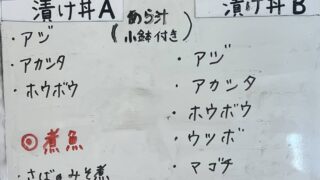 漬け丼A
あら汁
(小鉢付き)
・アジ
・アカシタ
・ホウボウ
◎煮魚
・さばみそ煮
漬け丼B
・アジ
・アカシタ
・ホウボウ
・ウツボ
・マゴチ